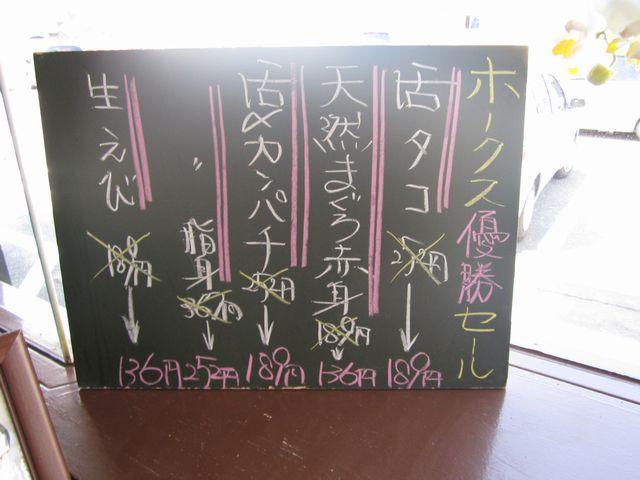 ホークス優勝セール
活タコ 252円 → 189円
天然まぐろ赤身 189円 → 136円
活〆カンパチ 252円 → 189円
〃 脂身 367円 → 252円
生えび 189円 → 136円